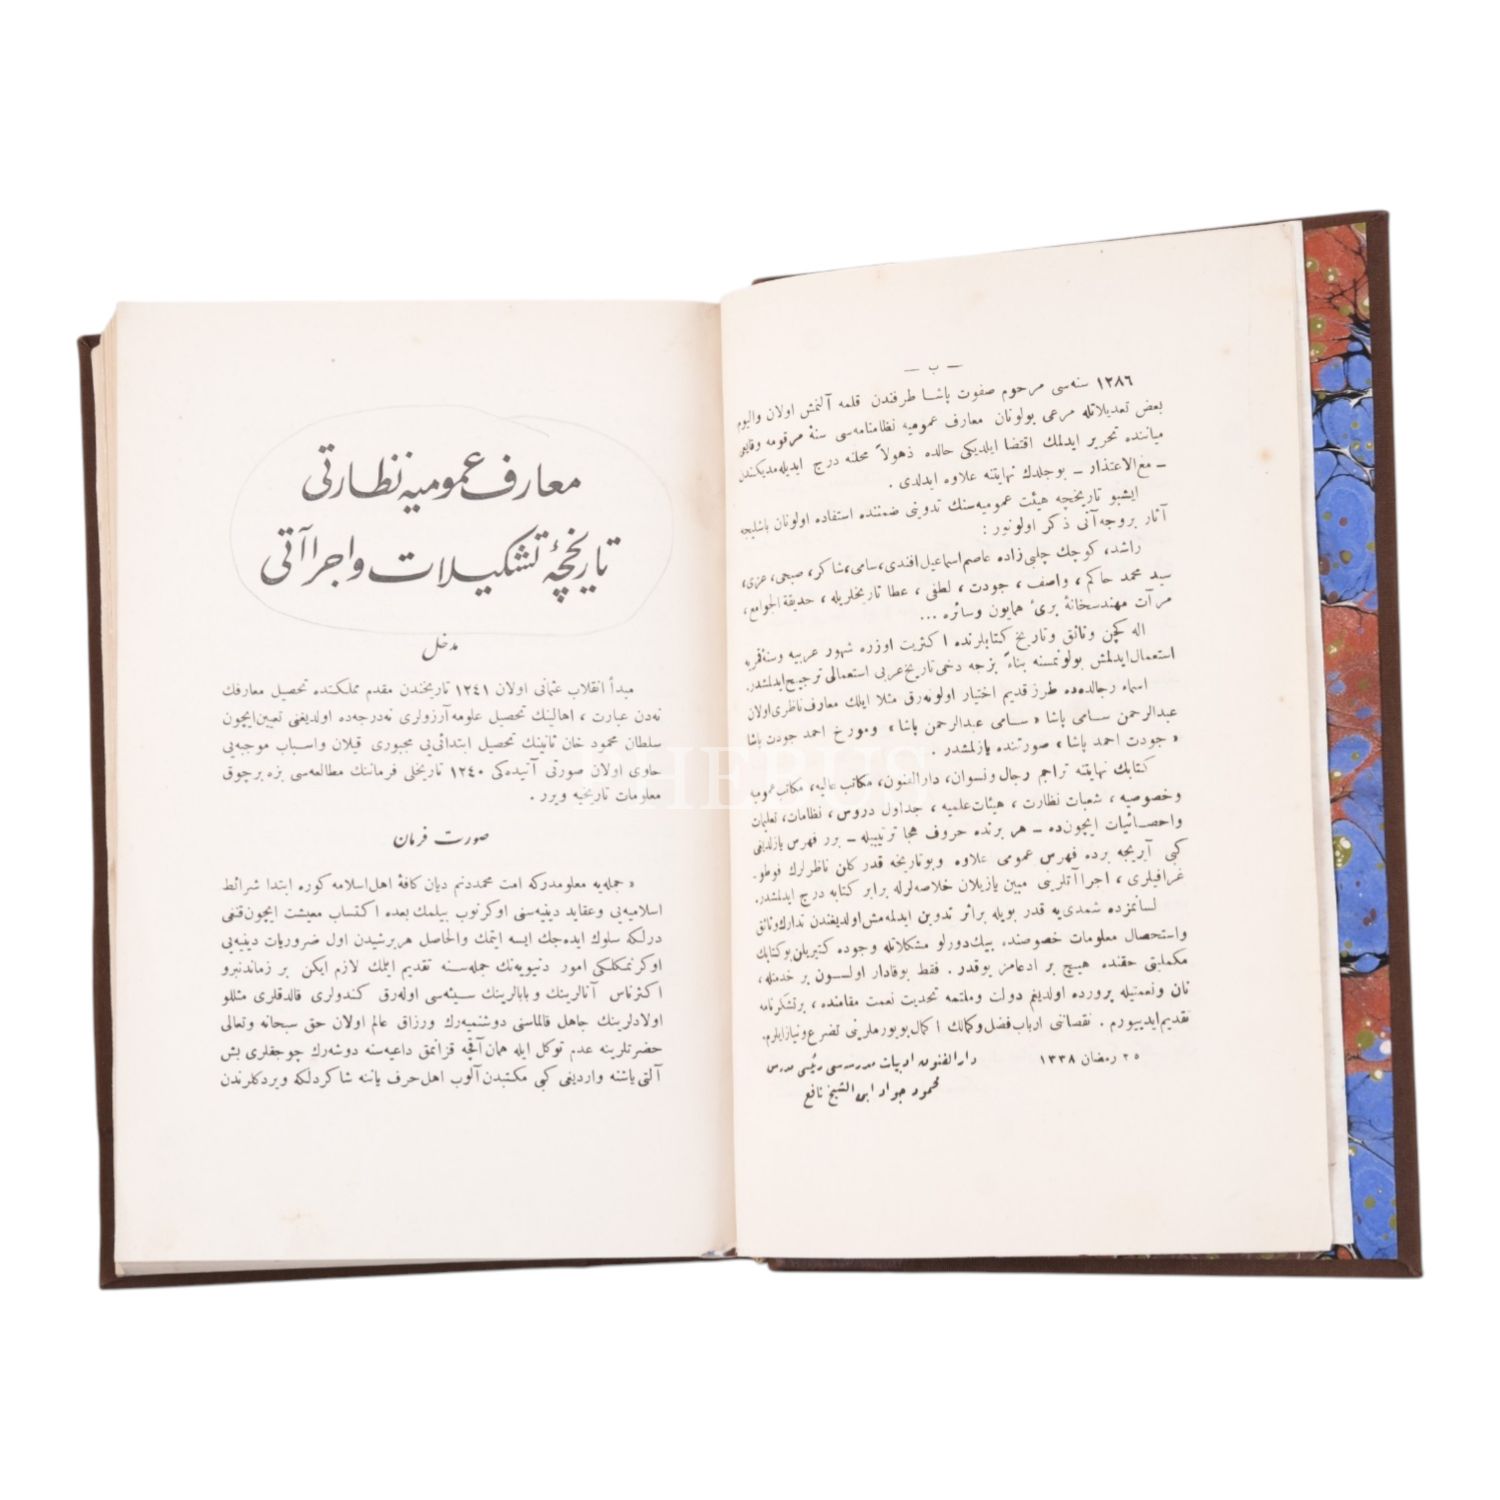 — ب —
١٢٨٦ سنه‌سی مرحوم صفوت پاشا طرفندن قلمه آلنمش اولان والیوم
بعض تعدیلاتله مرعی بولونان معارف عمومیه نظامنامه‌سی سنهٔ مرقومه وقایعی
میاننده تحریر ایدلمك اقتضا ایلدیکی حالده ذهولاً محلنه درج ایدیله‌مدیکندن
– مع‌الاعتذار – بوجلدك نهایتنه علاوه ایدلدی .
ایشبو تاریخچه هیئت عمومیه‌سنك تدوینی ضمننده استفاده اولونان باشلیجه
آثار بروجه‌آتی ذکر اولونور :
راشد، کوچك چلبی‌زاده عاصم‌اسماعیل‌افندی،سامی،شاکر، صبحی، عزی،
سید محمد حاکم ، واصف ، جودت ، لطفی ، عطا تاریخلریله ، حدیقة الجوامع ،
مرآت مهندسخانهٔ بریٔ همایون وسائره ...
اله کچن وثائق وتاریخ کتابلرنده اکثریت اوزره شهور عربیه وسنهٔ‌قمریه
استعمال‌ایدلمش بولونمسنه بناءً بزجه دخی‌تاریخ‌عربی استعمالی ترجیح‌ایدلمشدر.
اسماء رجالده‌ده طرزقدیم اختیار اولونه‌رق مثلا ایلك معارف‌ناظری‌اولان
عبدالرحمن سامی پاشا « سامی عبدالرحمن پاشا » ومورخ احمد جودت پاشا
« جودت احمد پاشا » صورتنده یازلمشدر .
کتابك نهایتنه تراجم رجال ونسوان، دارالفنون، مکاتب عالیه، مکاتب‌عمومیه
وخصوصیه ، شعبات نظارت ، هیئات‌علمیه ، جداول دروس ، نظامات، تعلیمات
واحصائیات ایچون‌ده – هر برنده حروف هجا ترتیبیله – برر فهرس یازلدیغی
کبی آیریجه برده فهرس عمومی علاوه وبوتاریخه قدر کلن ناظرلرك فوطو-
غرافیلری ، اجراآتلرینی مبین یازیلان خلاصه‌لرله برابر کتابه درج ایدلمشدر.
لسانمزده شمدی‌یه قدر بویله براثر تدوین ایدلمه‌مش‌اولدیغندن تدارك‌وثائق
واستحصال معلومات خصوصنده بیك‌دورلو مشکلاتله وجوده کتیریلن‌بوکتابك
مکملیتی حقنده هیچ بر ادعامز یوقدر . فقط بوقادار اولسون بر خدمتله ،
نان ونعمتیله پرورده اولدیغم دولت وملتمه تحدیث نعمت مقامنده ، برتشکرنامه
تقدیم‌ایدییورم . نقصاننی ارباب‌فضل‌وکمالك اکمال‌بویورملرینی تضرع‌ونیازایلرم.
٢٥ رمضان ١٣٣٨
دارالفنون ادبیات مدرسه‌سی رئیسی مدرس
محمود جواد ابن الشیخ نافع
معارف عمومیه نظارتی
تاریخچهٔ تشکیلات واجراآتی
مدخل
مبدأ انقلاب عثمانی اولان ١٢٤١ تاریخندن مقدم مملکتنده تحصیل معارفك
نه‌دن عبارت ، اهالینك تحصیل علومه‌آرزولری نه‌درجه‌ده اولدیغنی تعیین‌ایچون
سلطان محمود خان ثانینك تحصیل ابتدائی‌یی مجبوری قیلان واسباب موجبه‌یی
حاوی اولان صورتی آتیده‌کی ١٢٤٠ تاریخلی فرماننك مطالعه‌سی بزه برچوق
معلومات تاریخیه ویرر .
صورت فرمان
« جمله‌یه معلومدرکه امت محمددنم دیان کافهٔ اهل‌اسلامه کوره ابتدا شرائط
اسلامیه‌یی وعقاید دینیه‌سنی اوکرنوب بیلمك بعده اکتساب معیشت ایچون‌قنغی
درلکه سلوك ایده‌جك ایسه ایتمك والحاصل هربرشیدن اول ضروریات دینیه‌یی
اوکرنمکلکی امور دنیویه‌نك جمله‌سنه تقدیم ایلمك لازم ایکن بر زماندنبرو
اکثرناس آنالرینك وبابالرینك سیئه‌سی اوله‌رق کندولری قالدقلری مثللو
اولادلرینك جاهل قالماسنی دوشنمیه‌رك ورزاق عالم اولان حق سبحانه وتعالی
حضرتلرینه عدم توکل ایله همان آقچه قزانمق داعیه‌سنه دوشه‌رك چوجقلری بش
آلتی یاشنه واردیغی کبی مکتبدن آلوب اهل‌حرف یاننه شاکردلکه ویردکلرندن
PHEBUS